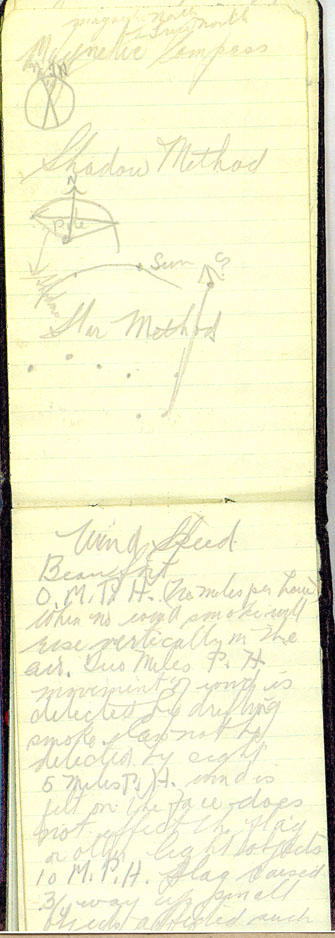 magnetic North
true North
Magnetic Compass
N
Shadow Method
N
Pole
Sun
Shadow
Star Method
Wind Speed
Beaufort
0. M. P. H. (no miles per hour)
When no wind smoke will
rise vertically in the
air. Two Miles P. H.
movement of wind is
detected by drifting
smoke. May not be
detected by sight
5 Miles P. H. wind is
felt on the face does
not effect the flag
or other light objects
10 M. P. H. flag raised
3/4 way up small
objects affected such